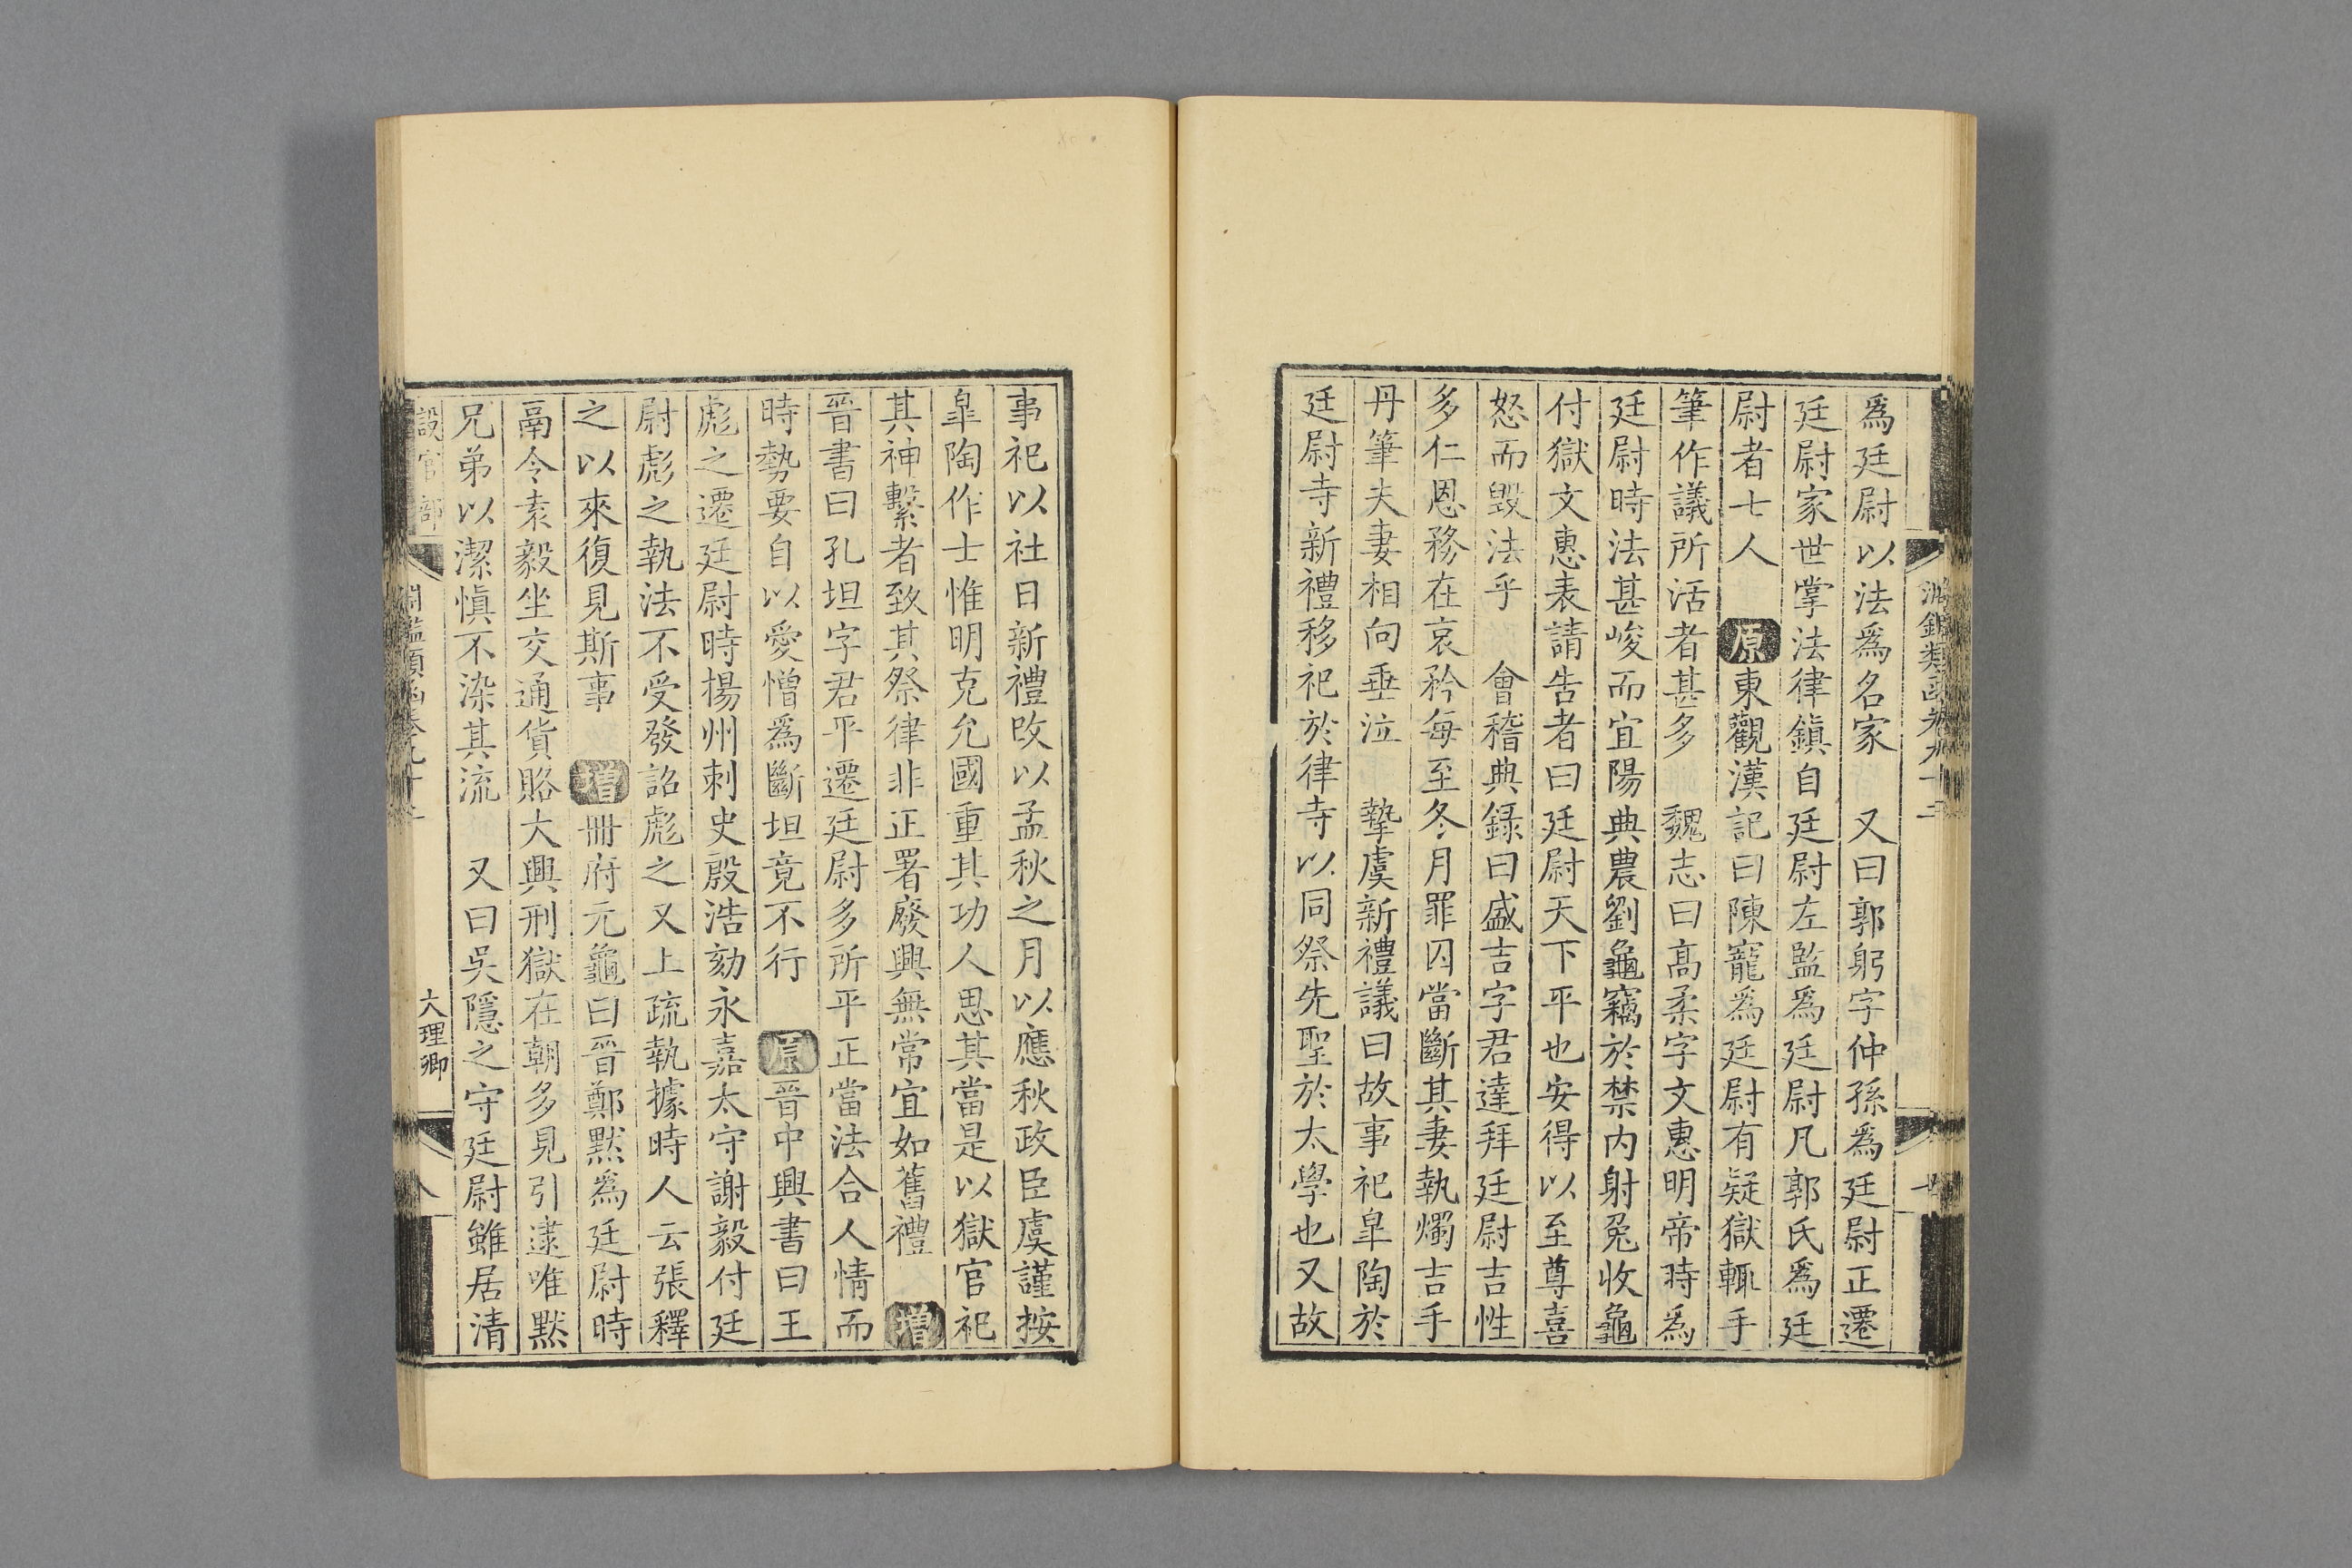 爲廷尉以法爲名家　又曰郭躬字仲孫爲廷尉正遷
廷尉家世掌法律鎮自廷尉左監爲廷尉凡郭氏爲廷
尉者七人　原東觀漢記曰陳寵爲廷尉有疑獄輒手
筆作議所活者甚多　魏志曰高柔字文惠明帝時爲
廷尉時法甚峻而宜陽典農劉龜竊於禁内射兔收龜
付獄文惠表請告者曰廷尉天下平也安得以至尊喜
怒而毀法乎　會稽典錄曰盛吉字君達拜廷尉吉性
多仁恩務在哀矜每至冬月罪囚當斷其妻執燭吉手
丹筆夫妻相向垂泣　摯虞新禮議曰故事祀皐陶於
廷尉寺新禮移祀於律寺以同祭先聖於太學也又故
事祀以社日新禮改以孟秋之月以應秋政臣虞謹按
皐陶作士惟明克允國重其功人思其當是以獄官祀
其神繫者致其祭律非正署廢興無常宜如舊禮　增
晉書曰孔坦字君平遷廷尉多所平正當法合人情而
時勢要自以愛憎爲斷坦竟不行　原晉中興書曰王
彪之遷廷尉時揚州刺史殷浩劾永嘉太守謝毅付廷
尉彪之執法不受發詔彪之又上疏執據時人云張釋
之以來復見斯事　增冊府元龜曰晉鄭默爲廷尉時
鬲令袁毅坐交通貨賂大興刑獄在朝多見引逮唯默
兄弟以潔慎不染其流　又曰吳隱之守廷尉雖居清
設官部
淵鑑類函卷九十
大理卿
八